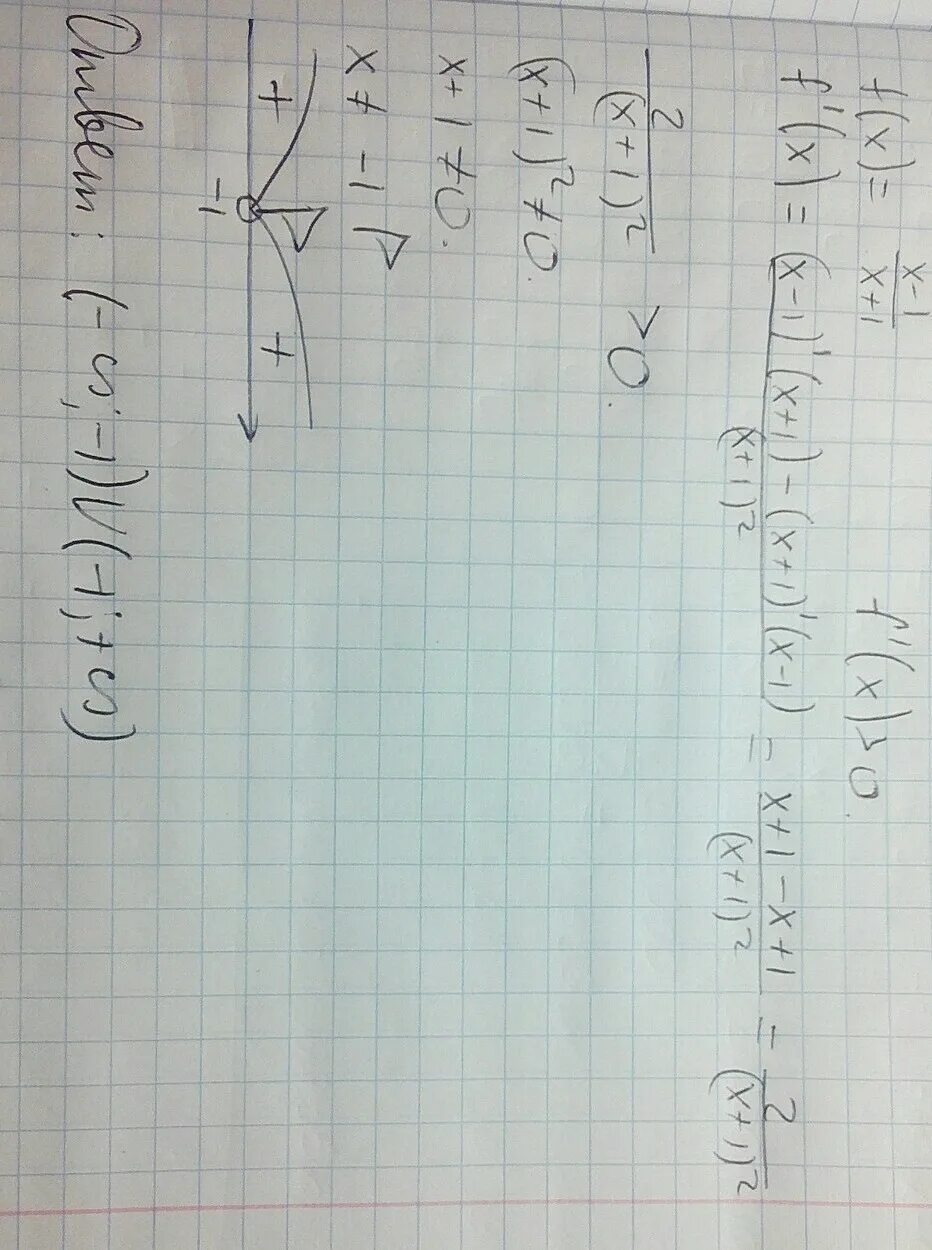 f(x) = (x-1)/(x+1)   f'(x)>0
f'(x) = ((x-1)'(x+1)-(x+1)'(x-1))/(x+1)² = (x+1-x+1)/(x+1)² = 2/(x+1)²
2/(x+1)² > 0.
(x+1)² ≠ 0.
x+1 ≠ 0.
x ≠ -1
+ +
-1
Ответ: (-∞;-1)U(-1;+∞)